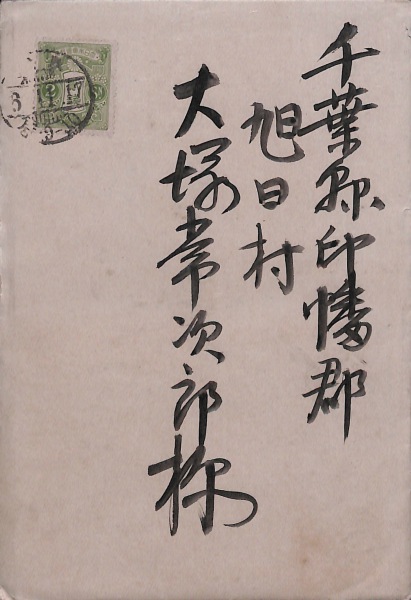 千葉縣印幡郡
旭日村
大塚常次郎様